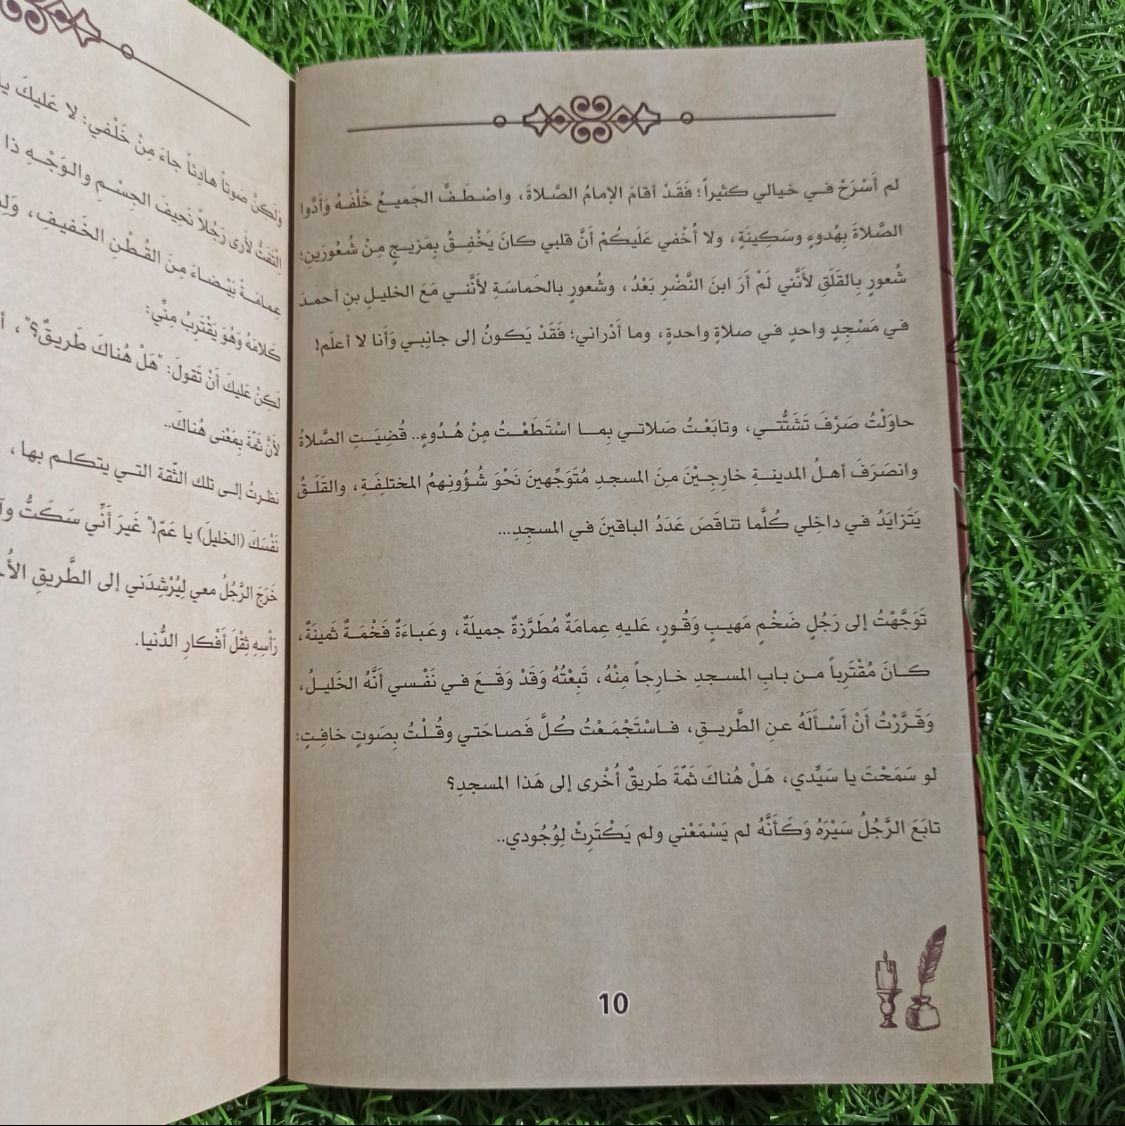 لم أَسْرَحْ في خيالي كثيراً؛ فَقَدْ أقامَ الإمامُ الصَّلاةَ، واصْطَفَّ الجَميعُ خَلْفَهُ وَأَدَّوا
الصَّلاةَ بِهُدوءٍ وسَكِينَةٍ، ولا أُخْفي عَلَيكُمْ أَنَّ قلبي كانَ يَخْفِقُ بِمَزيجٍ مِنْ شُعُورَينِ؛
شُعورٍ بِالقَلَقِ لأَنَّني لَمْ أرَ ابنَ النَّضْرِ بَعْدُ، وشُعورٍ بالحَماسَةِ لأَنَّني مَعَ الخليلِ بنِ أحمدَ
في مَسْجِدٍ واحدٍ في صلاةٍ واحدةٍ، وما أَدْراني؛ فَقَدْ يَكونُ إلى جانِبي وَأَنا لا أعلَم!
حاوَلْتُ صَرْفَ تَشَتُّتي، وتابَعْتُ صَلاتي بِما اسْتَطَعْتُ مِنْ هُدُوءٍ.. قُضِيَتِ الصَّلاةُ
وانصَرَفَ أهلُ المدينةِ خارِجِيْنَ منَ المسجدِ مُتَوَجِّهينَ نَحْوَ شُؤُونِهِمُ المختلفَةِ، والقَلَقُ
يَتَزايَدُ في داخِلِي كُلَّما تناقَصَ عَدَدُ الباقينَ في المسجِدِ...
تَوَجَّهْتُ إلى رَجُلٍ ضَخْمٍ مَهيبٍ وَقُورٍ، عَليهِ عِمامَةٌ مُطَرَّزةٌ جميلَةٌ، وعَباءَةٌ فَخْمَةٌ ثَمينَةٌ،
كانَ مُقْتَرِباً من بابِ المسجدِ خارِجاً مِنْهُ، تَبِعْتُهُ وَقَدْ وَقَعَ في نَفْسي أَنَّهُ الخَليلُ،
وَقَرَّرْتُ أَنْ أَسْأَلَهُ عنِ الطَّريقِ، فاسْتَجْمَعْتُ كُلَّ فَصاحَتي وقُلْتُ بِصَوتٍ خافِتٍ:
لو سَمَحْتَ يا سَيِّدي، هَلْ هُناكَ ثَمَّةَ طَريقٌ أُخْرى إلى هَذا المسجدِ؟
تابَعَ الرَّجُلُ سَيْرَهُ وَكَأَنَّهُ لم يَسْمَعْني ولم يَكْتَرِثْ لِوُجُودي..
10
ولَكِنْ صَوتاً هادِئاً جاءَ مِنْ خَلْفي: لا عَليكَ
التَفَتُّ لأَرى رَجُلاً نَحِيفَ الجِسْمِ والوَجْهِ ذا
عِمامَةٌ بَيْضاءَ مِنَ القُطْنِ الخَفيفِ،
كَلامَهُ وَهُوَ يَقْتَرِبُ مِنِّي:
لَكِنْ عَليكَ أَنْ تَقولَ: "هَلْ هُناكَ طَريقٌ؟"،
لأَنَّ ثَمَّةَ بِمَعْنى هُناكَ..
نظرتُ إلى تلك الثّقة التي يتكلم بها،
نَفْسَكَ (الخليلَ) يا عَمّ!" غَيرَ أَنِّي سَكَتُّ
خَرَجَ الرَّجُلُ معي لِيُرْشِدَني إلى الطَّريقِ
رَأْسِهِ ثِقْلَ أَفْكارِ الدُّنيا.